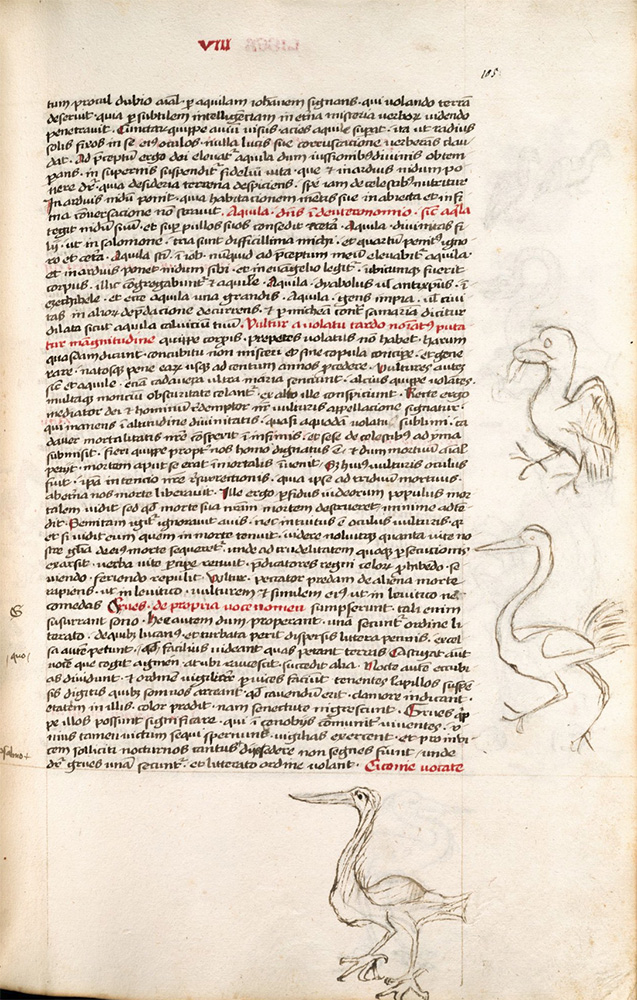 VIII
185
tum procul dubio aial p aquilam iohānem signans qui volando terrā
deseruit quia p subtilem intelligentiam in etna misteria verbox videndo
penetrauit Cunctar quippe auiū visus acies aquile supat ita ut radius
solis fixos in se eius oculos nulla lucis sue coruscatione verberās clau
dat Ad pceptum ergo dei eleuat aquila dum iussionibus diuinis obtem
pans in supernis suspendit fidelium vita que et in arduis nidum po
nere dr quia desideria terrena despiciens spe iam de celestibus nutritur
In arduis nidū ponit quia habitationem mētis sue in abiecta et infi
ma conuersacione non struit Aquila dns in deuteromonio sicut aqla
tegit nidū suū et sup pullos suos consedit Aquila diuinitas fi
lij ut in salomone tria sunt difficillima michi et quartum penitus igno
ro Aquila in iob nūquid ad pceptum meū eleuabit aquila
et in arduis ponet nidum sibi et in euangelio legit ubicumqz fuerit
corpus illic congregabunt aquile Aquila dyabolus ul antixpus
ezechihele et ecce aquila una grandis Aquila gens impia ul ciui
tas in alior depdacione decurrens p micheā samaria dicitur
dilata sicut aquila caluicium tuū Vultur a volatu tardo noiat puta
tur magnitudine quippe corpis prepetes volatus non habet harum
quasdam dicunt concubitu non misceri et sine copula concipe et gene
rare natosqz pene usqz ad centum annos pcedere Vultures autē
sicut et aquile eciā cadauera ultra maria senciunt alcius quippe volātes
multaqz moncium obscuritate celant ex alto ille conspiciunt Recte ergo
mediator dei et hominū redemptor vulturis appellacione signatur
qui manens in altitudine diuinitatis quasi quodam volatu sublimi ca
dauer mortalitatis nre conspexit in infimis et sese de celestibus ad yma
submisit fieri quippe propt nos homo dignatus ē et dum mortuū aial
petijt mortem aput se erat inmortalis inuenit huius vulturis oculus
fuit ipa intencio nre resurrectionis quia ipse ad triduū mortuus
ab erna nos morte liberauit Ille ergo pfidus iudeorum populus mor
talem vidit sed morte sua nram mortem destrueret minime atten
dit Semitam igit ignorauit auis nec intuitus ē oculus vulturis
et si vidit eum quem in morte tenuit videre noluit quanta vite no
stre glia de eius morte sequeret unde ad crudelitatem quoqz psecucionis
exarsit verba vite pcipe renuit pdicatores regni celor phibedo se
uiendo feriendo repulit Vultur peccator predam de aliena morte
rapiens ut in leuitico vulturem et similem eius ut in leuitico ne
comedas Grues de propria voce nomen sumpserunt tali enim
susurrant sono hee autem dum properant una secunt ordine li
terato de quibus lucanus et turbata perit dispersis littera pennis excel
sa autē petunt facilius videant quas petant terras Castigat aut
uoce que cogit agmen at ubi rauescit succedit alia Nocte autē excubi
as diuidunt et ordinē vigiliax p vices faciūt tenentes lapillos suspē
sis digitis quibus somnos arceant cauendū erit clamore indicant
etatem in illis color prodit nam senectute nigrescunt Grues
pe illos possunt significare qui in cenobijs communit viuentes
nius tamen victum sequi spernunt vigilias exercent et pro inui
cem solliciti nocturnos cantus dissedere non segnes fiunt unde
dr grues unā secunt et litterato ordine volant Ciconie vocate
G
quo